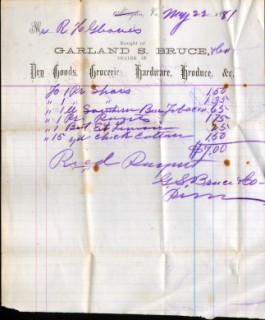 May 22 1881
Mr R H Graves
Bought of
GARLAND S. BRUCE, & Co
DEALER IN
Dry Goods, Groceries, Hardware, Produce, &c.
To 1 Pr Shoes 1.50
" 1 " " 1.95
" 1 Southern Tobacco 65
" 1 Pr 1.75
" 1 Bot 25
" 15 yd Chick Cotton 1.50
$7.00
Recd Payment
G. S. Bruce & Co